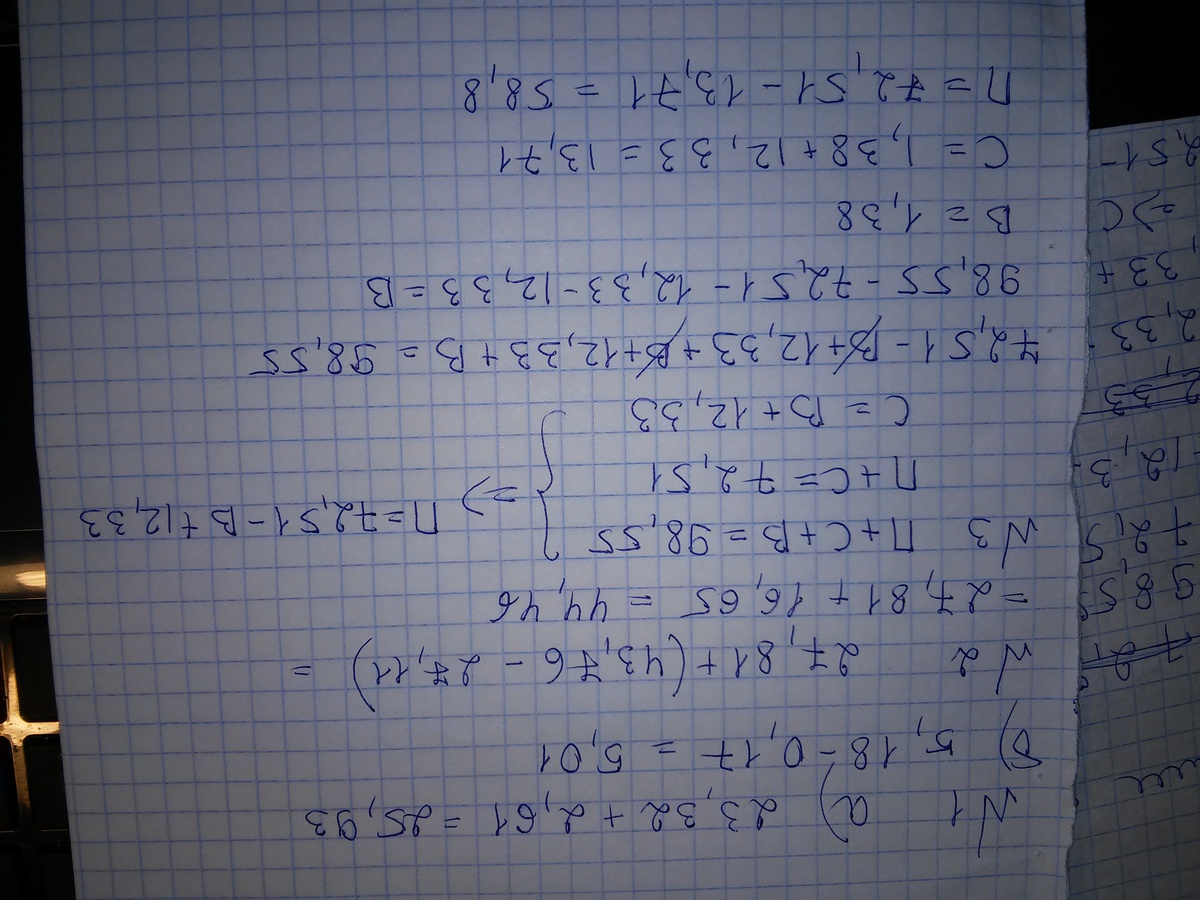 №1 а) 23,32 + 2,61 = 25,93
б) 5,18 - 0,17 = 5,01
№2 27,81 + (43,76 - 27,11) =
= 27,81 + 16,65 = 44,46
№3 П + С + В = 98,55
П + С = 72,51
С = В + 12,33
=> П = 72,51 - В + 12,33
72,51 - В + 12,33 + В + 12,33 + В = 98,55
98,55 - 72,51 - 12,33 - 12,33 = В
В = 1,38
С = 1,38 + 12,33 = 13,71
П = 72,51 - 13,71 = 58,8
72,5
12,3
2,33
,33 +
=> С
2,51 -